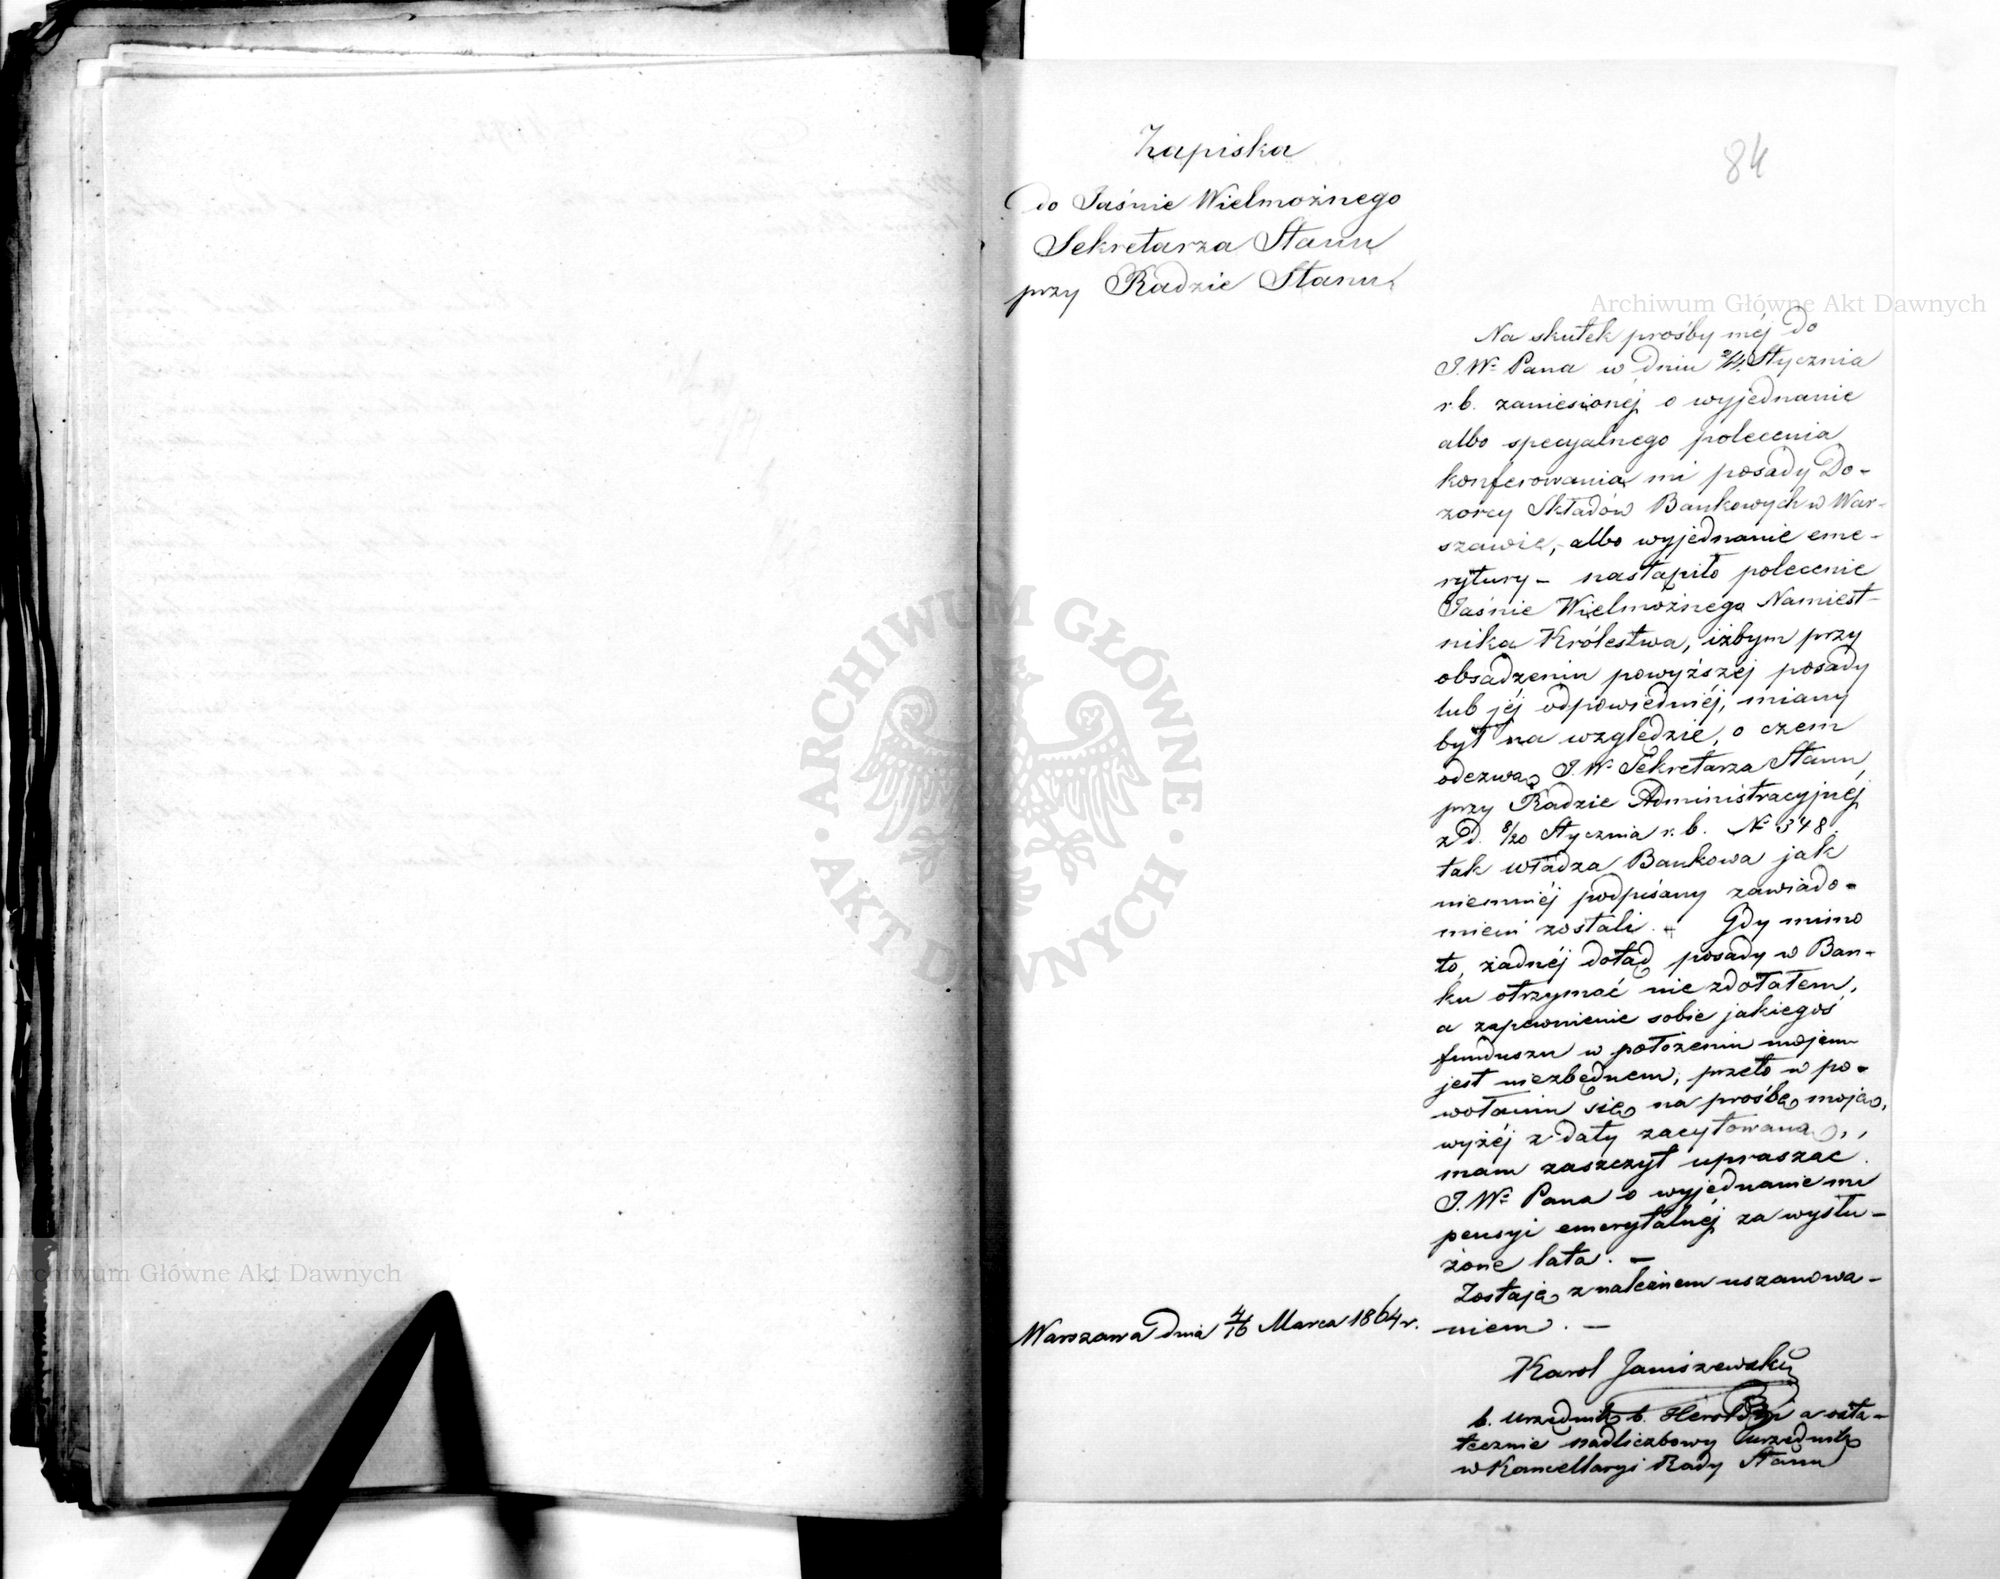 84
Zapiska
do Jaśnie Wielmożnego
Sekretarza Stanu
przy Radzie Stanu
Archiwum Główne Akt Dawnych
Na skutek prośby méj do
J.W. Pana w dniu Stycznia
r.b. zaniesionéj o wyjednanie
albo specyalnego polecenia
konferowania mi posady Do-
zorcy Składów Bankowych w War-
szawie, albo wyjednanie eme-
rytury – nastąpiło polecenie
Jaśnie Wielmożnego Namiest-
nika Królestwa, iżbym przy
obsadzeniu powyższéj posady
lub jéj odpowiedniéj, miany
był na względzie, o czem
odezwą J.W. Sekretarza Stanu
przy Radzie Administracyjnéj
z d. 8/20 Stycznia r.b. No 348.
tak władza Bankowa jak
niemniéj podpisany zawiado-
mieni zostali. – Gdy mimo
to, żadnéj dotąd posady w Ban-
ku otrzymać nie zdołałem,
a zapewnienie sobie jakiegoś
funduszu w położeniu mojem
jest niezbędnem, przeto w po-
wołaniu się na prośbę moją,
wyżéj z daty zacytowaną,
mam zaszczyt upraszać
J.W. Pana o wyjednanie mi
pensyi emerytalnéj za wysłu-
żone lata. –
Zostaję z należnem uszanowa-
niem. –
Warszawa dnia 4/16 Marca 1864 r.
Karol Janiszewski
b. urzędnik b. Heroldyi a osta-
tecznie nadliczbowy urzędnik
w Kancellaryi Rady Stanu
Archiwum Główne Akt Dawnych
ARCHIWUM GŁÓWNE · AKT DAWNYCH ·